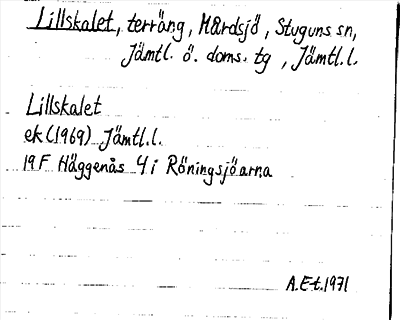 Lillskalet, terräng, Mårdsjö, Stuguns sn,
Jämtl. ö. doms. tg, Jämtl.l.
Lillskalet
ek(1969) Jämtl.l.
19F Häggenås 4 i Röningsjöarna
A.E-t.1971